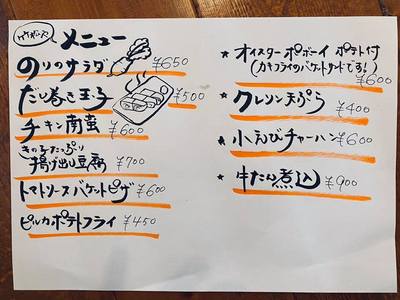 メニュー
のりのサラダ ¥650
だし巻き玉子 ¥500
チキン南蛮 ¥600
きのこたっぷり
揚げ出し豆腐 ¥700
トマトソースバケットピザ ¥600
ピルカポテトフライ ¥450
★ オイスターポボーイ ポテト付
(カキフライのバケットサンドです!)
¥600
★ クレソン天ぷら ¥400
★ 小えびチャーハン ¥600
★ 牛たん煮込 ¥900